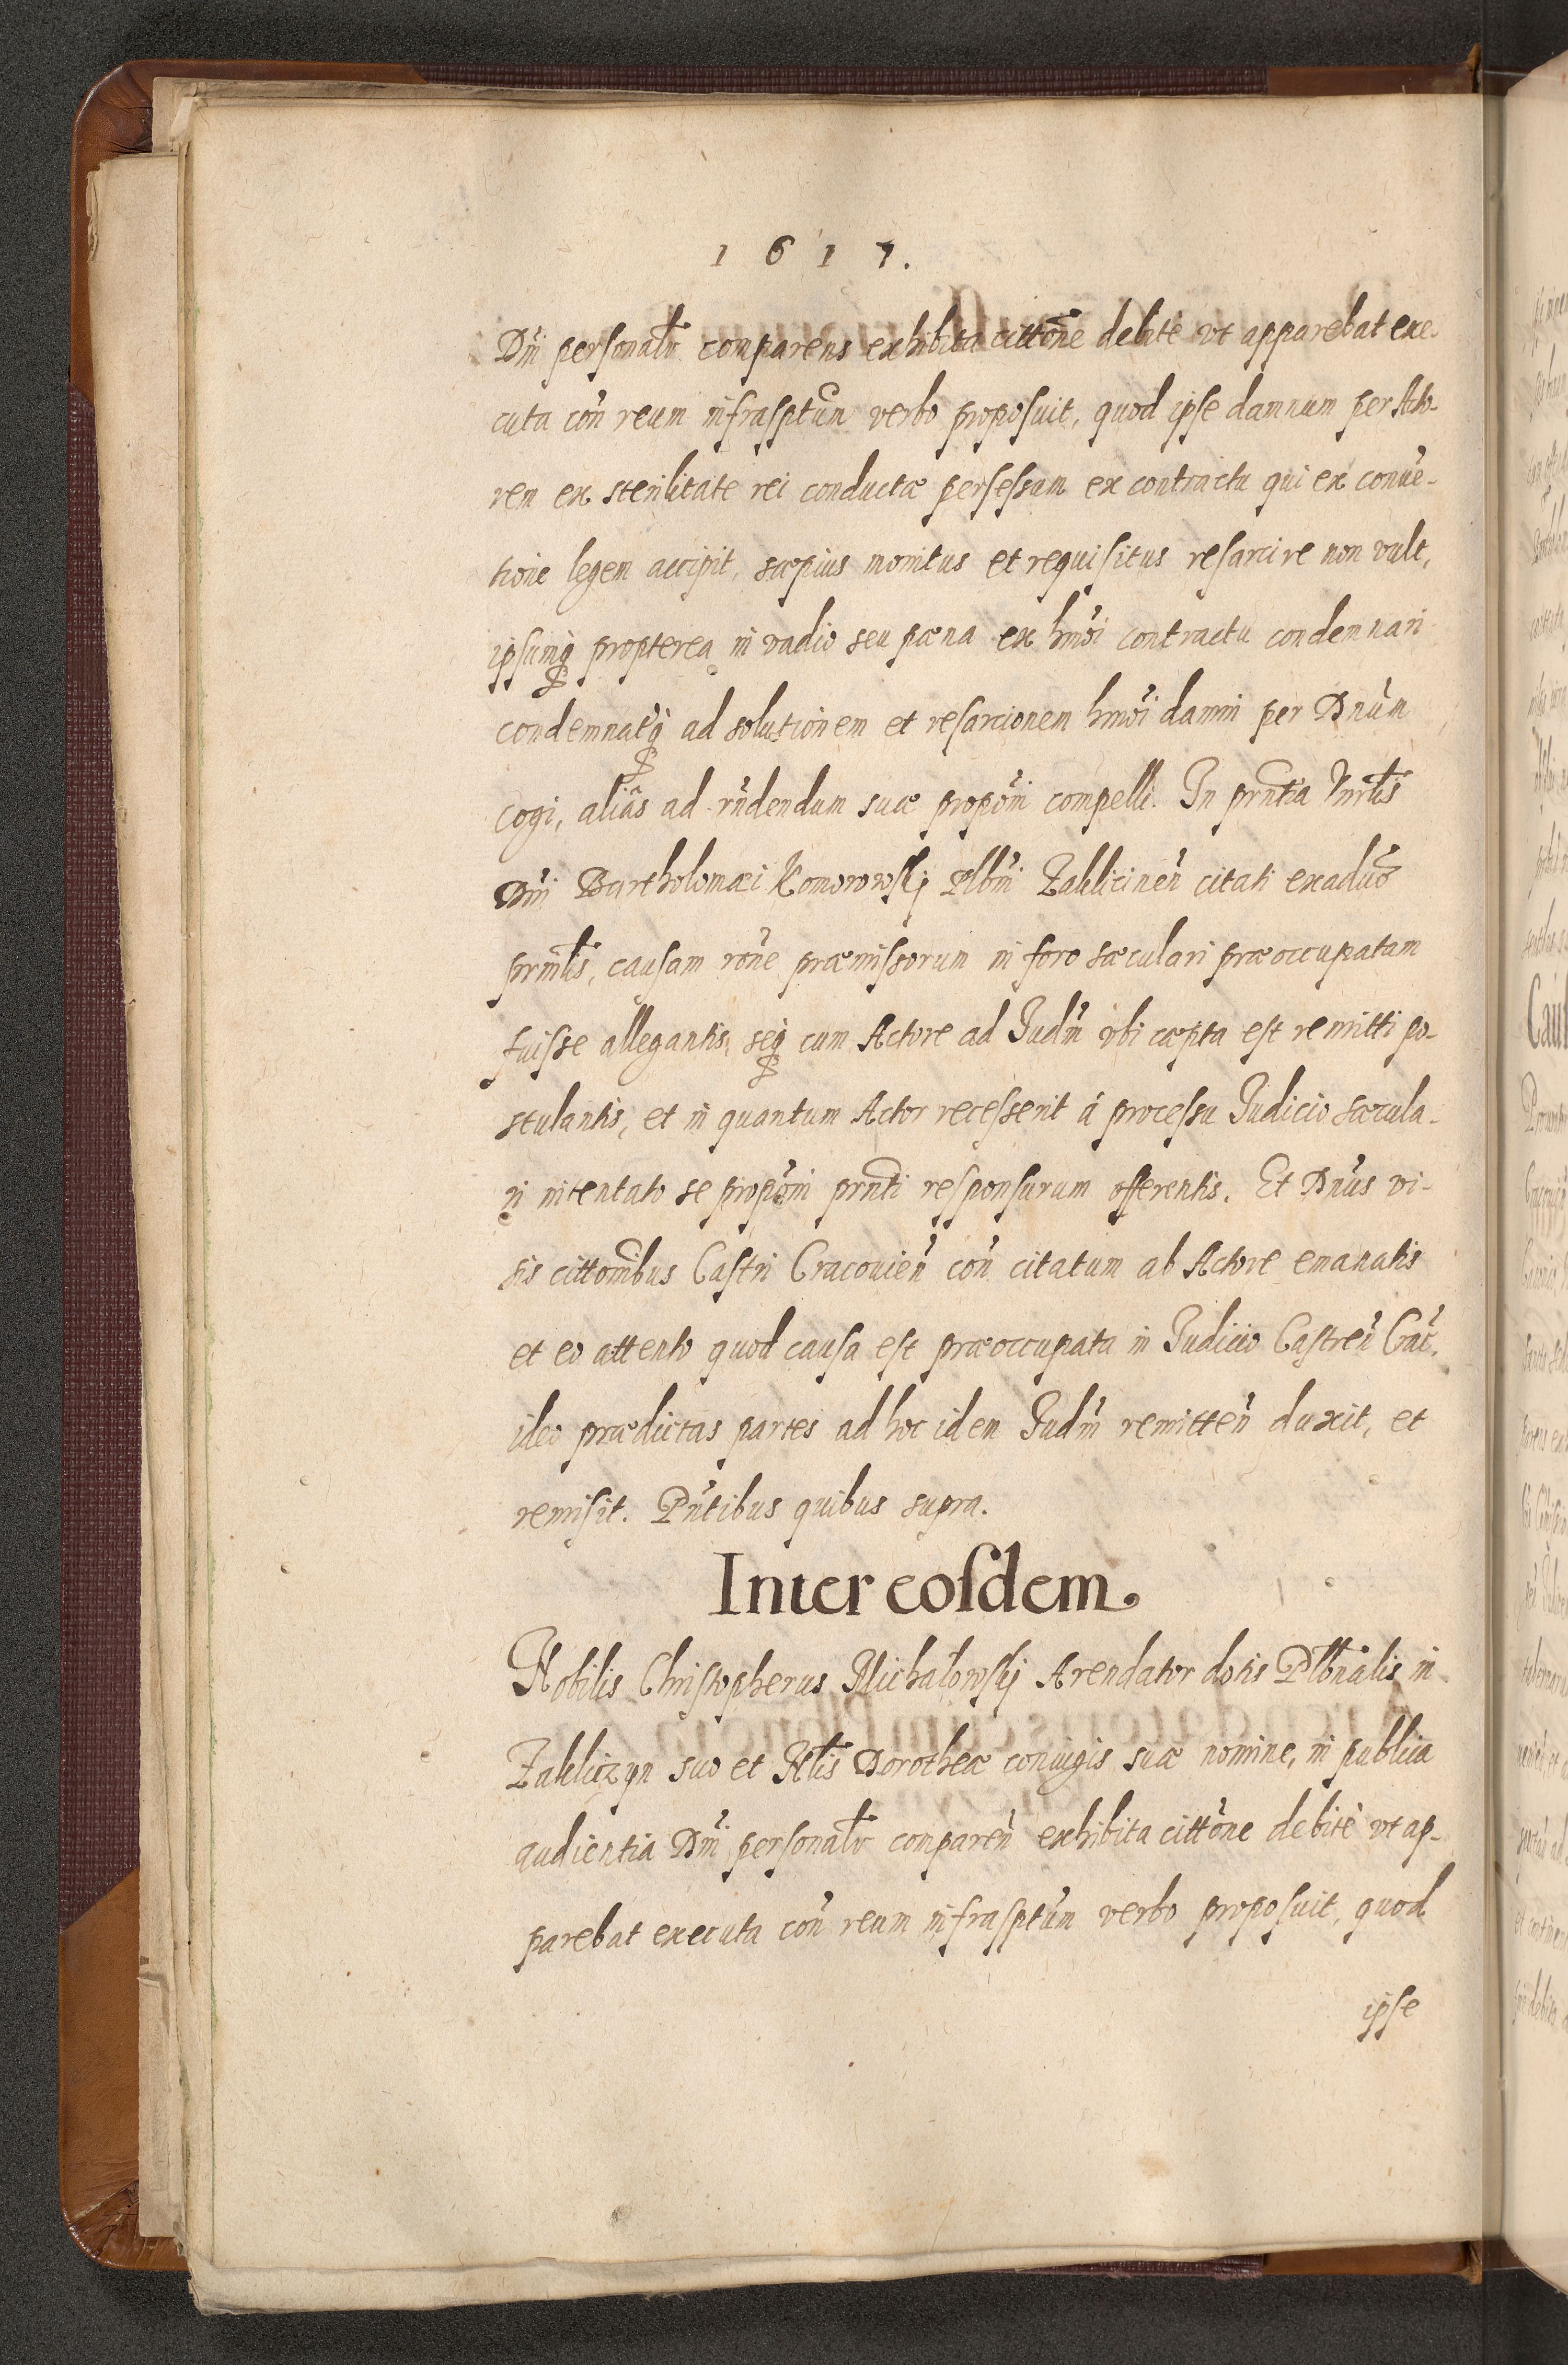 1617.
Dni personalr comparens exhibita cittone debite vt apparebat exe-
cuta con reum infrasptum verbo proposuit, quod ipse damnum per Acto-
rem ex sterilitate rei conductæ persessam ex contractu qui ex conue-
tione legem accipit, sæpius monitus et requisitus resarcire non vult,
ipsumq propterea in vadio seu pæna ex hmoi contractu condemnari
condemnatuq ad solutionem et resarcionem hmoi damni per Dnum
cogi, alias ad rndendum suæ proponi compelli. In prntia Vnrlis
Dni Bartholomæi Komorowskj Plbni Zaklicinen citati exaduo
prinlis, causam rone præmissorum in foro sæculari præoccupatam
fuisse allegantis, seq cum Actore ad Judm vbi cæpta est remitti po-
stulantis, et in quantum Actor recesserit á processu Judicio sæcula-
ri intentato se proponi prnti responsurum offerentis. Et Dnus vi-
sis cittonibus Castri Cracouien con citatum ab Actore emanatis
et eo attento quod causa est præoccupata in Judicio Castren Crac.
ideo prædictas partes ad hoc idem Judm remitten duxit, et
remisit. Pntibus quibus supra.
Inter eosdem.
Nobilis Christopherus Michalowskj Arendator dotis Plbnalis in
Zakliczyn suo et Nlis Dorotheæ coniugis suæ nomine, in publica
audientia Dni personalr comparen exhibita cittone debite vt ap-
parebat executa con reum infrasptum verbo proposuit, quod
ipse